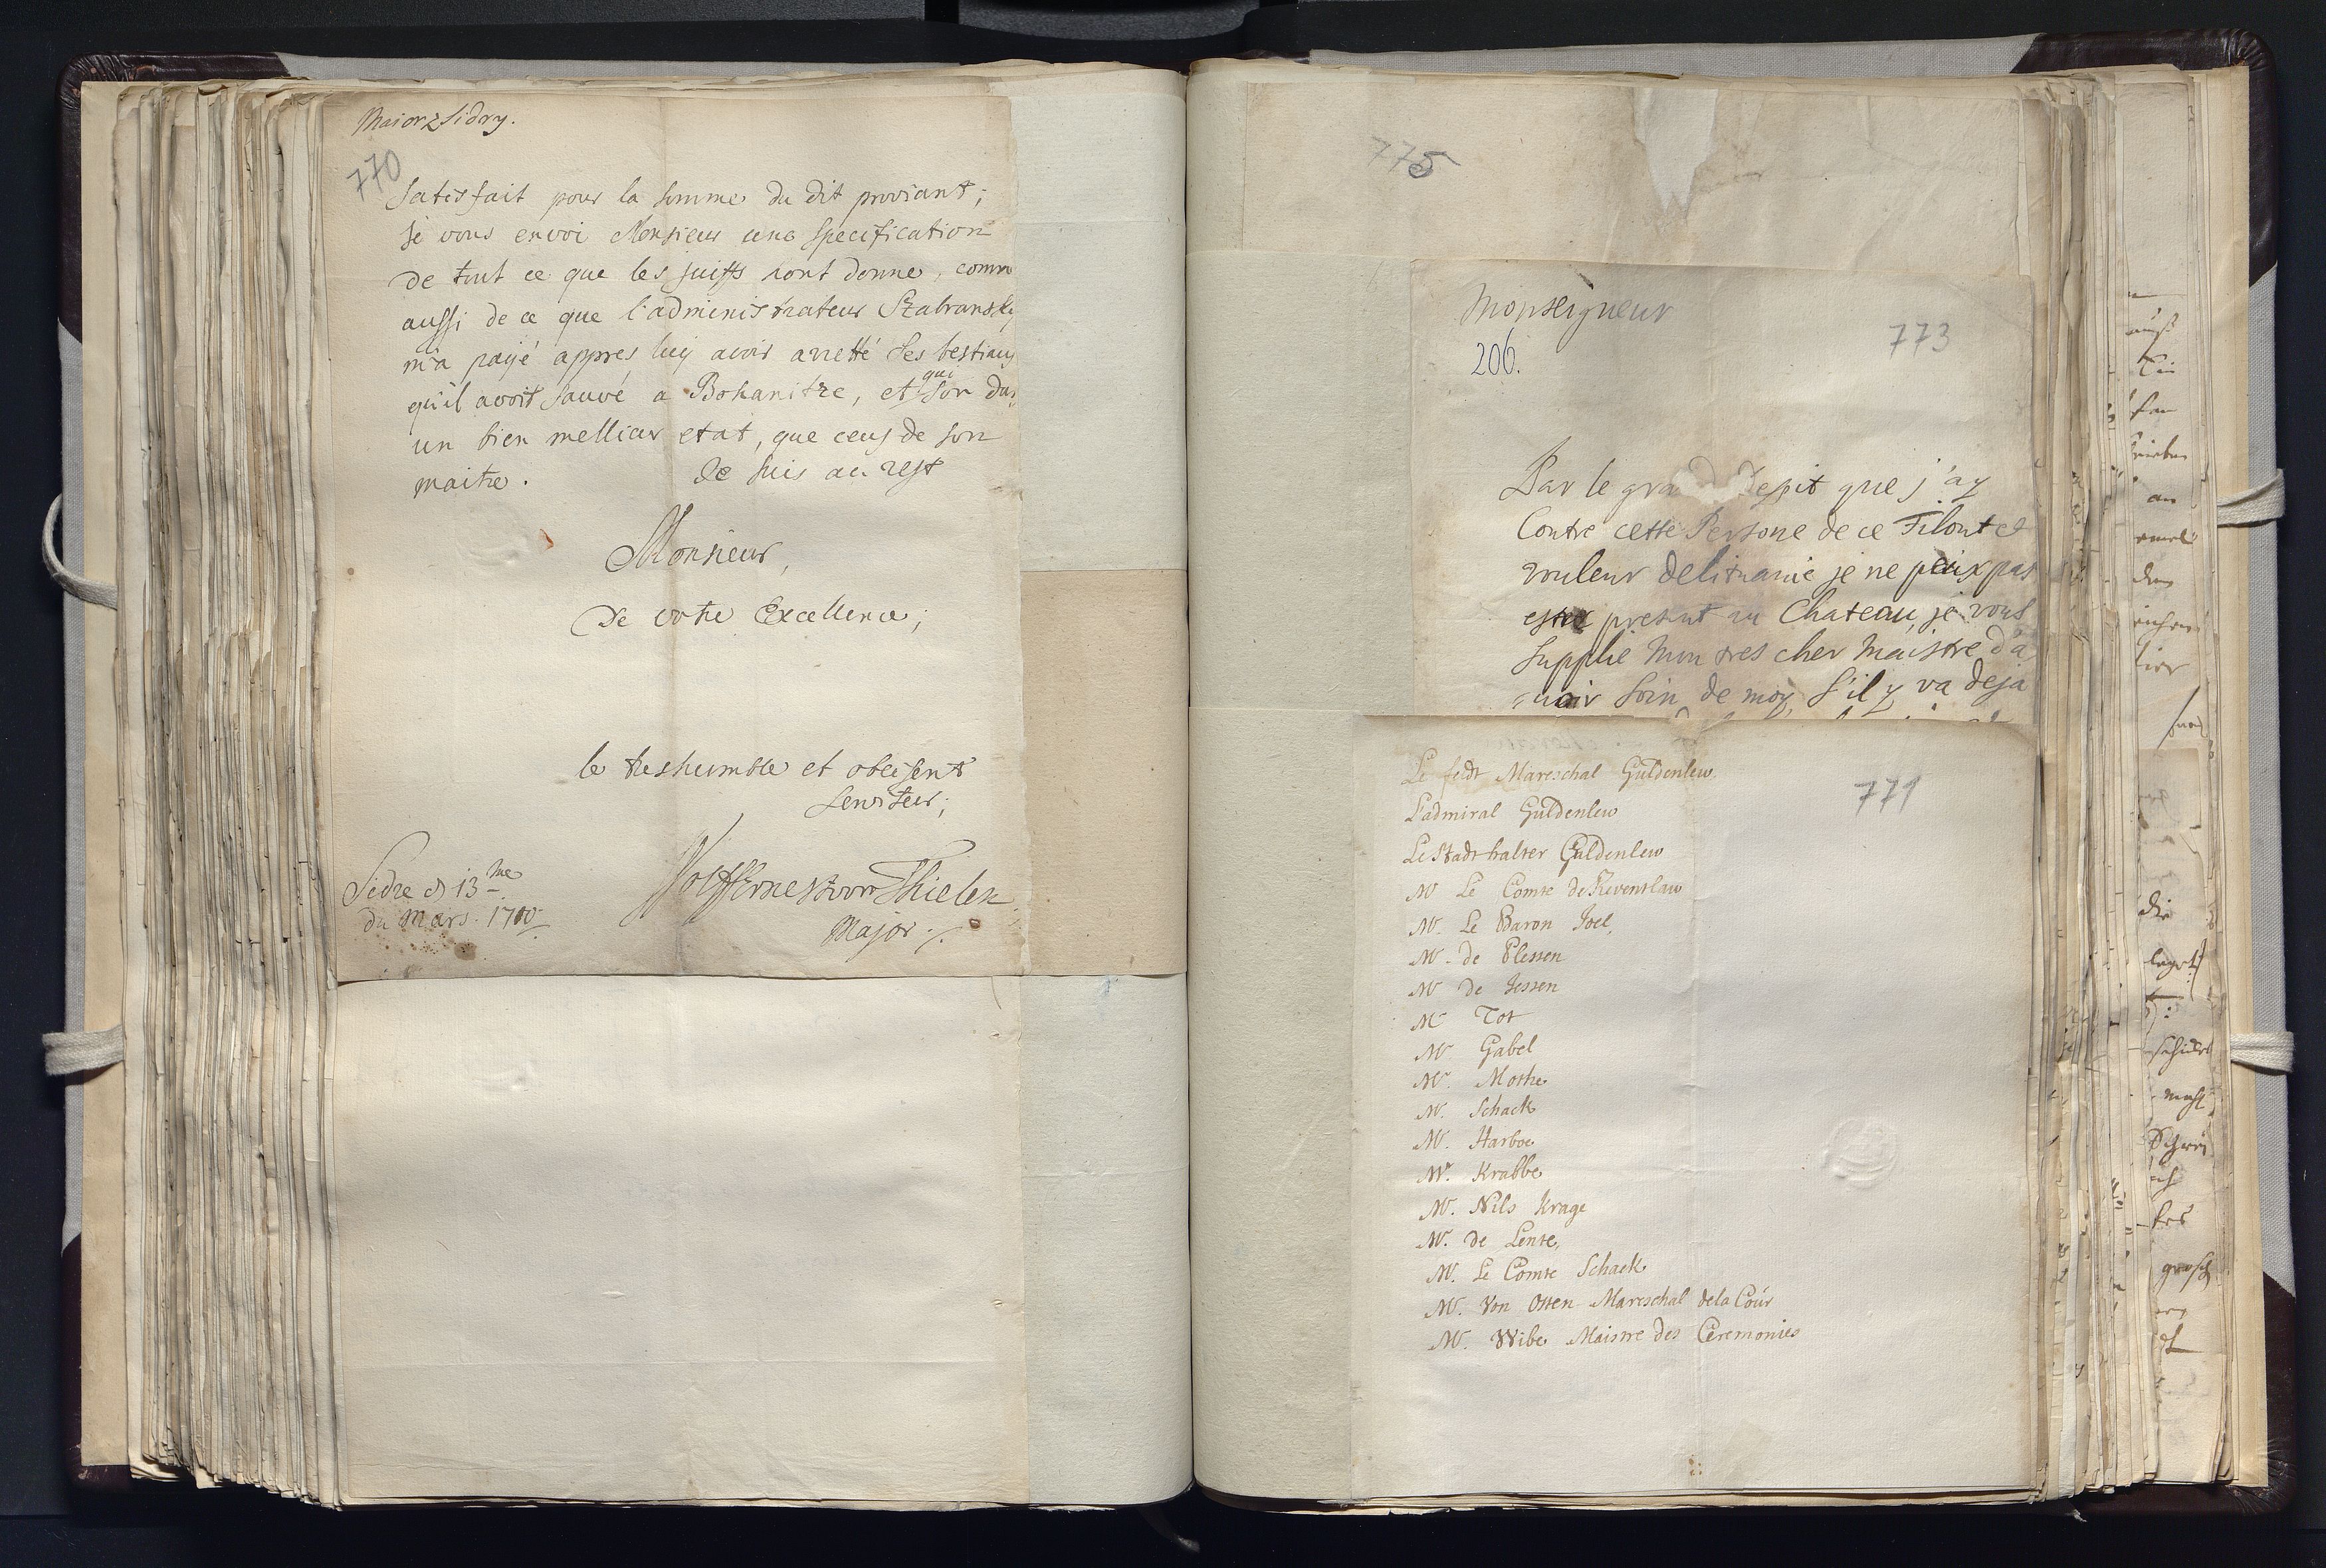 Maior z Sidry.
770
satisfait pour la somme du dit proviant;
je vous envoi Monsieur une specification
de tout ce que les juiffs iont donne, comm
aussi de ce que l'administrateur Szabransky
m'a payé appres luy avoir arretté ses bestiaux
qu'il avoit sauvé a Bohanitze, et qui son dans
un bien mellieur etat, que ceux de son
maitre. Je suis au rest
Monsieur,
De votre Excellence;
le treshumble et obeisent
serviteur;
Sidre d 13me
du Mars. 1710
Wolff Ernest von Thielen
Major
775
Monseigneur
206.
773
Par le grand despit que j'ay
Contre cette Persone de ce Filout et
vouleur delituanie je ne peux pas
estre present au Chateau, je vous
supplie mon tres cher Maistre d'a
uoir soin de moy, s'il y va deja
771
Le feldt Mareschal Guldenlew
L'admiral Guldenlew
Le Stadthalter Guldenlew
Mr Le Comte de Reventlaw
Mr. Le Baron Joel,
Mr. de Plessen
Mr de Jessen
Mr Tot
Mr Gabel
Mr. Mothe
Mr. Schack
Mr. Harboe
Mr. Krabbe
Mr. Nils Krage
Mr. de Lente,
Mr. Le Comte Schack
Mr. Von Otten Mareschal dela Coür
Mr. Wibe Maistre des Ceremonies